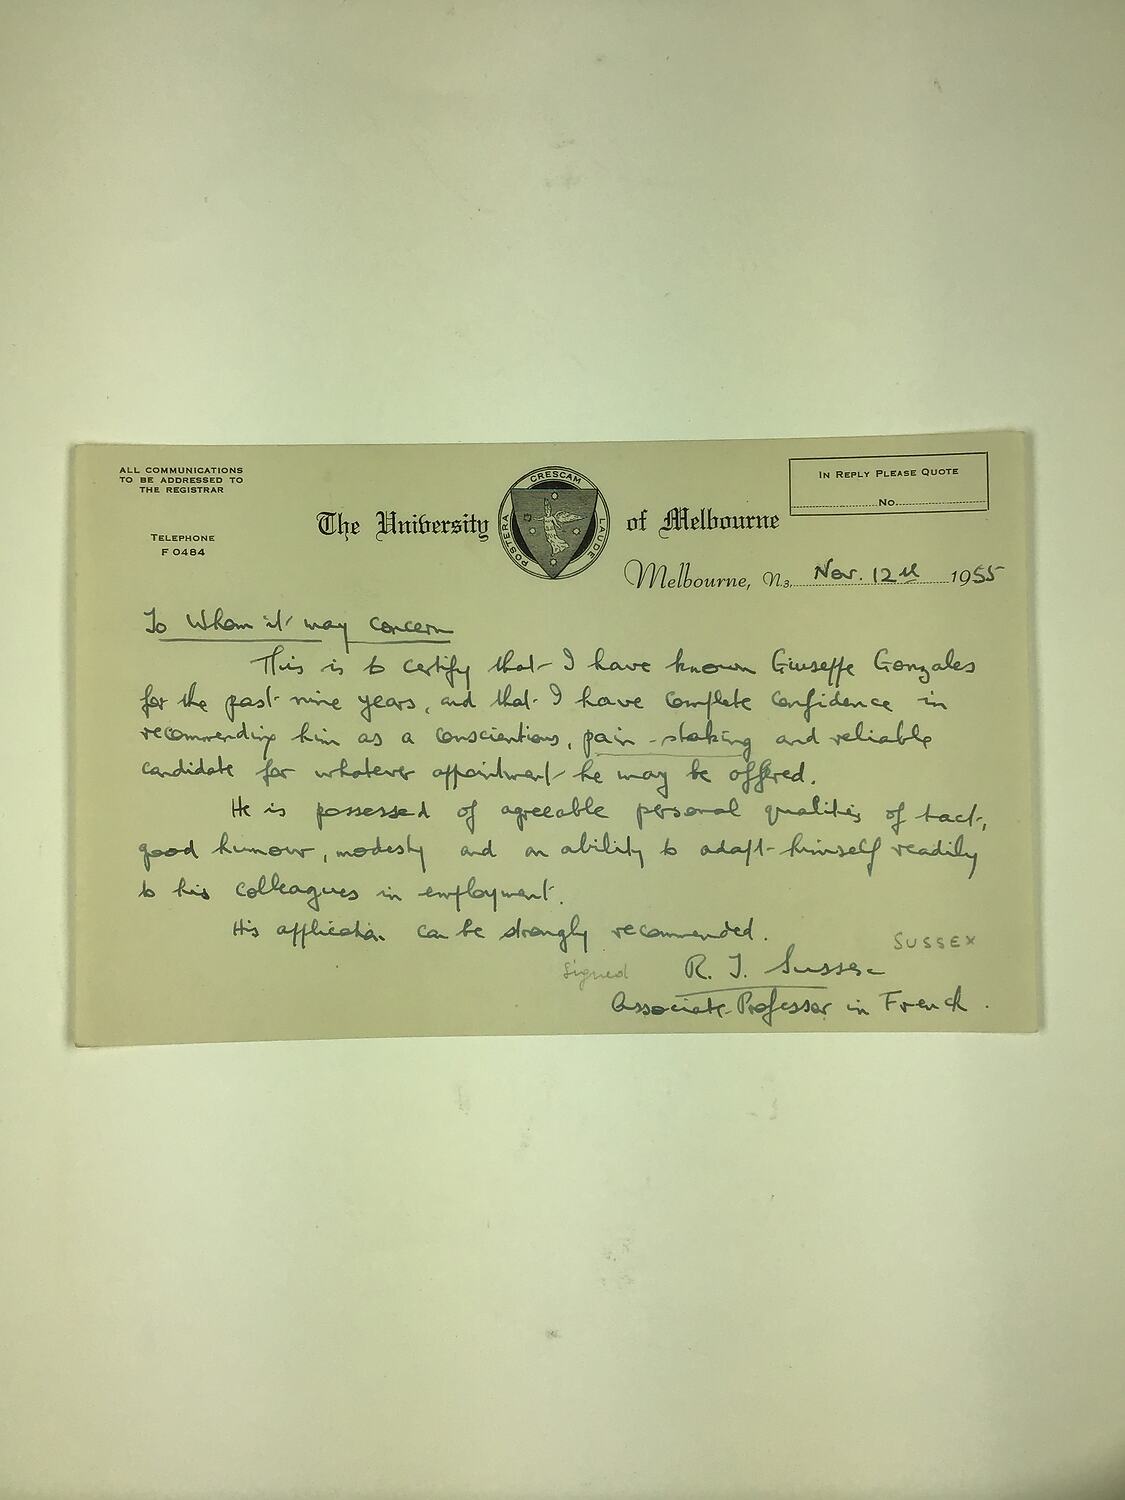 ALL COMMUNICATIONS
TO BE ADDRESSED TO
THE REGISTRAR
TELEPHONE
F 0484
The University of Melbourne
POSTERA CRESCAM LAUDE
IN REPLY PLEASE QUOTE
No.
Melbourne, N.3. Nov. 12th 1955
To Whom it may concern
This is to certify that I have known Giuseppe Gonzales
for the past nine years, and that I have complete confidence in
recommending him as a conscientious, pain-staking and reliable
candidate for whatever appointment he may be offered.
He is possessed of agreeable personal qualities of tact,
good humour, modesty and an ability to adapt himself readily
to his colleagues in employment.
His application can be strongly recommended.
SUSSEX
signed R. T. Sussex
Associate-Professor in French.